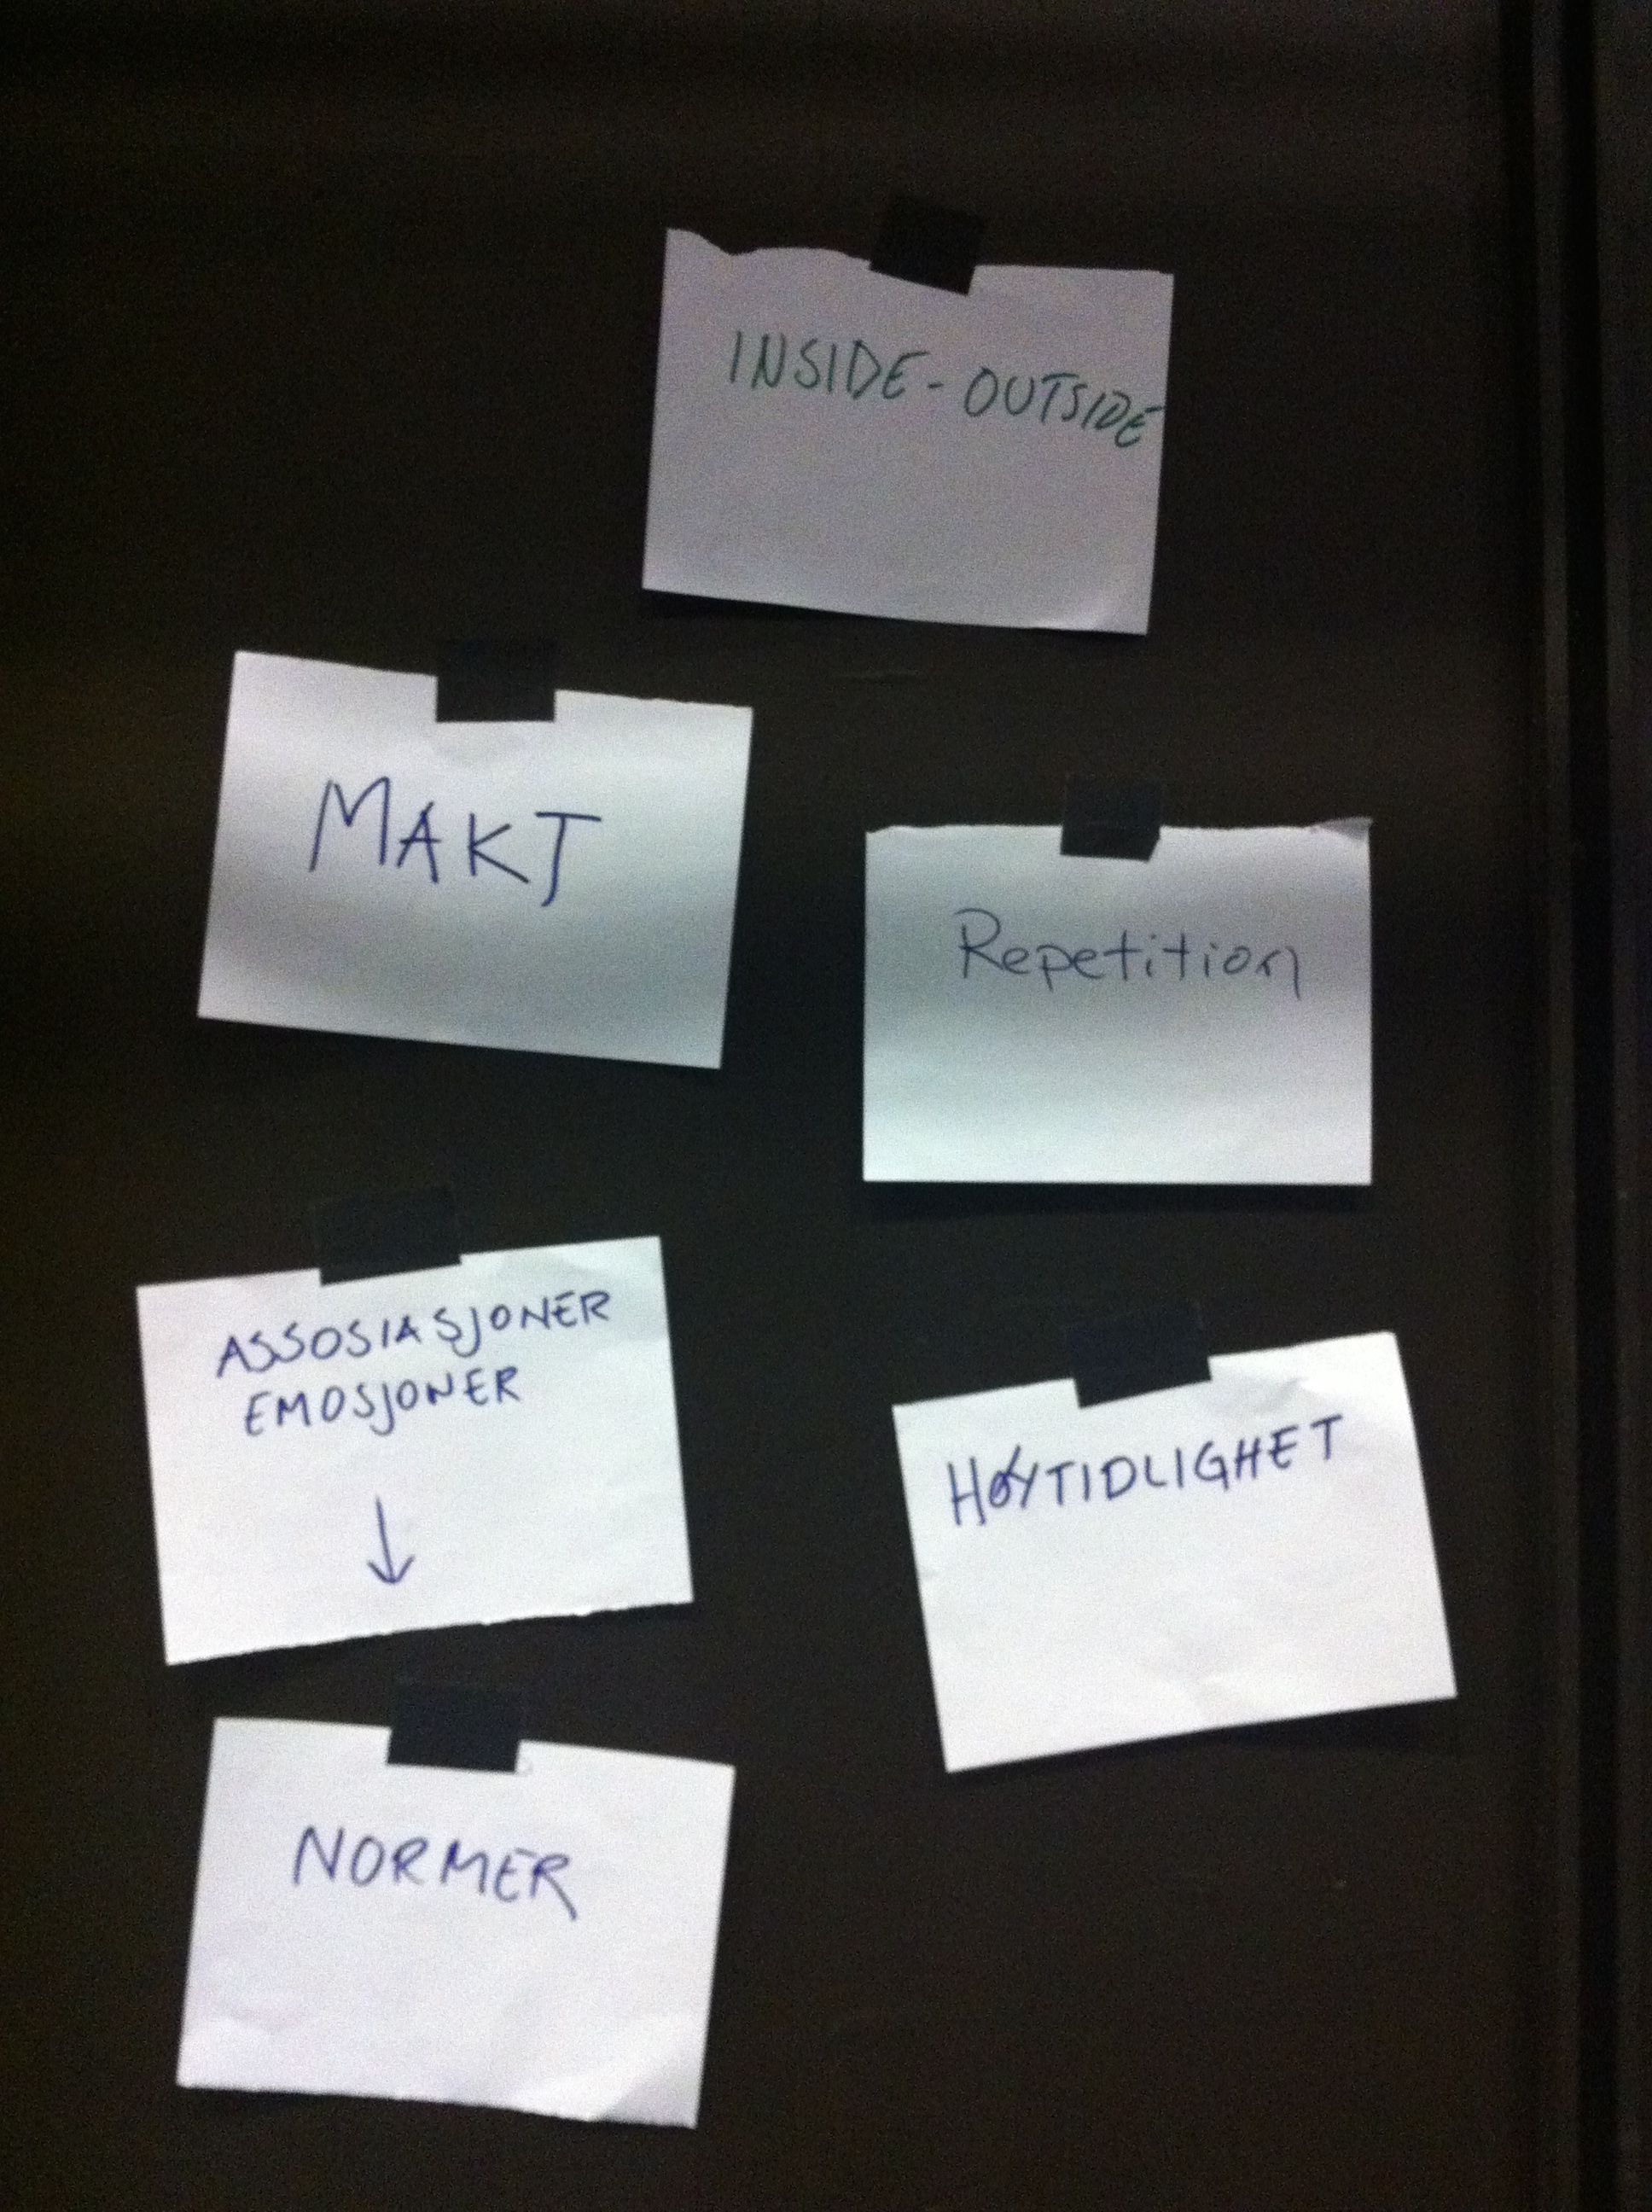 INSIDE - OUTSIDE
MAKT
Repetition
ASSOSIASJONER
EMOSJONER
↓
HØYTIDLIGHET
NORMER